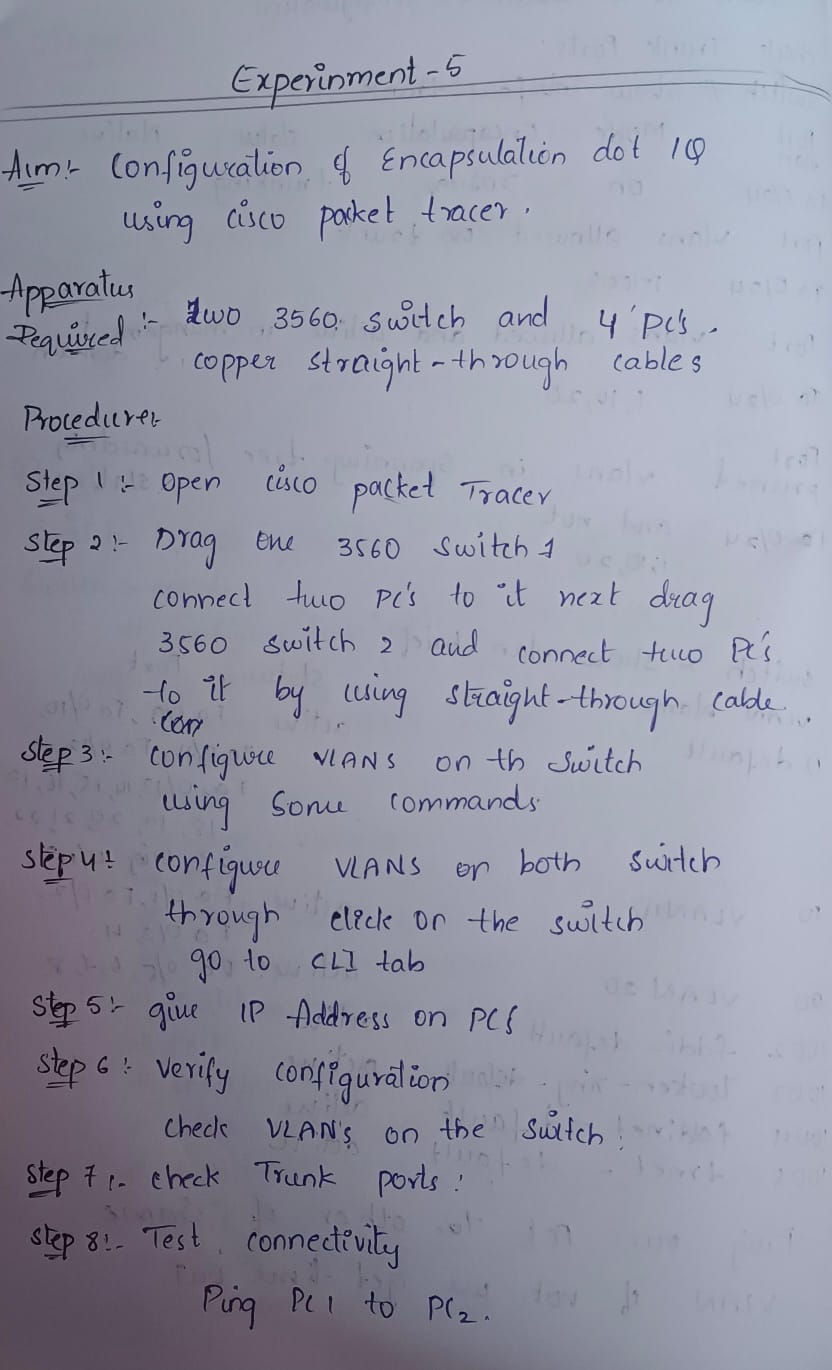 Experinment - 5
Aim:- Configuration of Encapsulation dot 1Q
using cisco packet tracer.
Apparatus
Required :- two 3560 switch and 4 PC's.
copper straight-through cables
Procedure:-
Step 1 :- Open cisco packet Tracer
Step 2 :- Drag one 3560 switch 1
connect two PC's to it next drag
3560 switch 2 and connect two PC's
to it by using straight-through cable.
Step 3 :- configure VLANS on th switch
using some commands.
Step 4 : configure VLANS on both switch
through click on the switch
go to CLI tab
Step 5 :- give IP Address on PCs
Step 6 : Verify configuration
check VLAN's on the switch.
Step 7 :- check Trunk ports :
Step 8 :- Test connectivity
Ping PC1 to PC2.